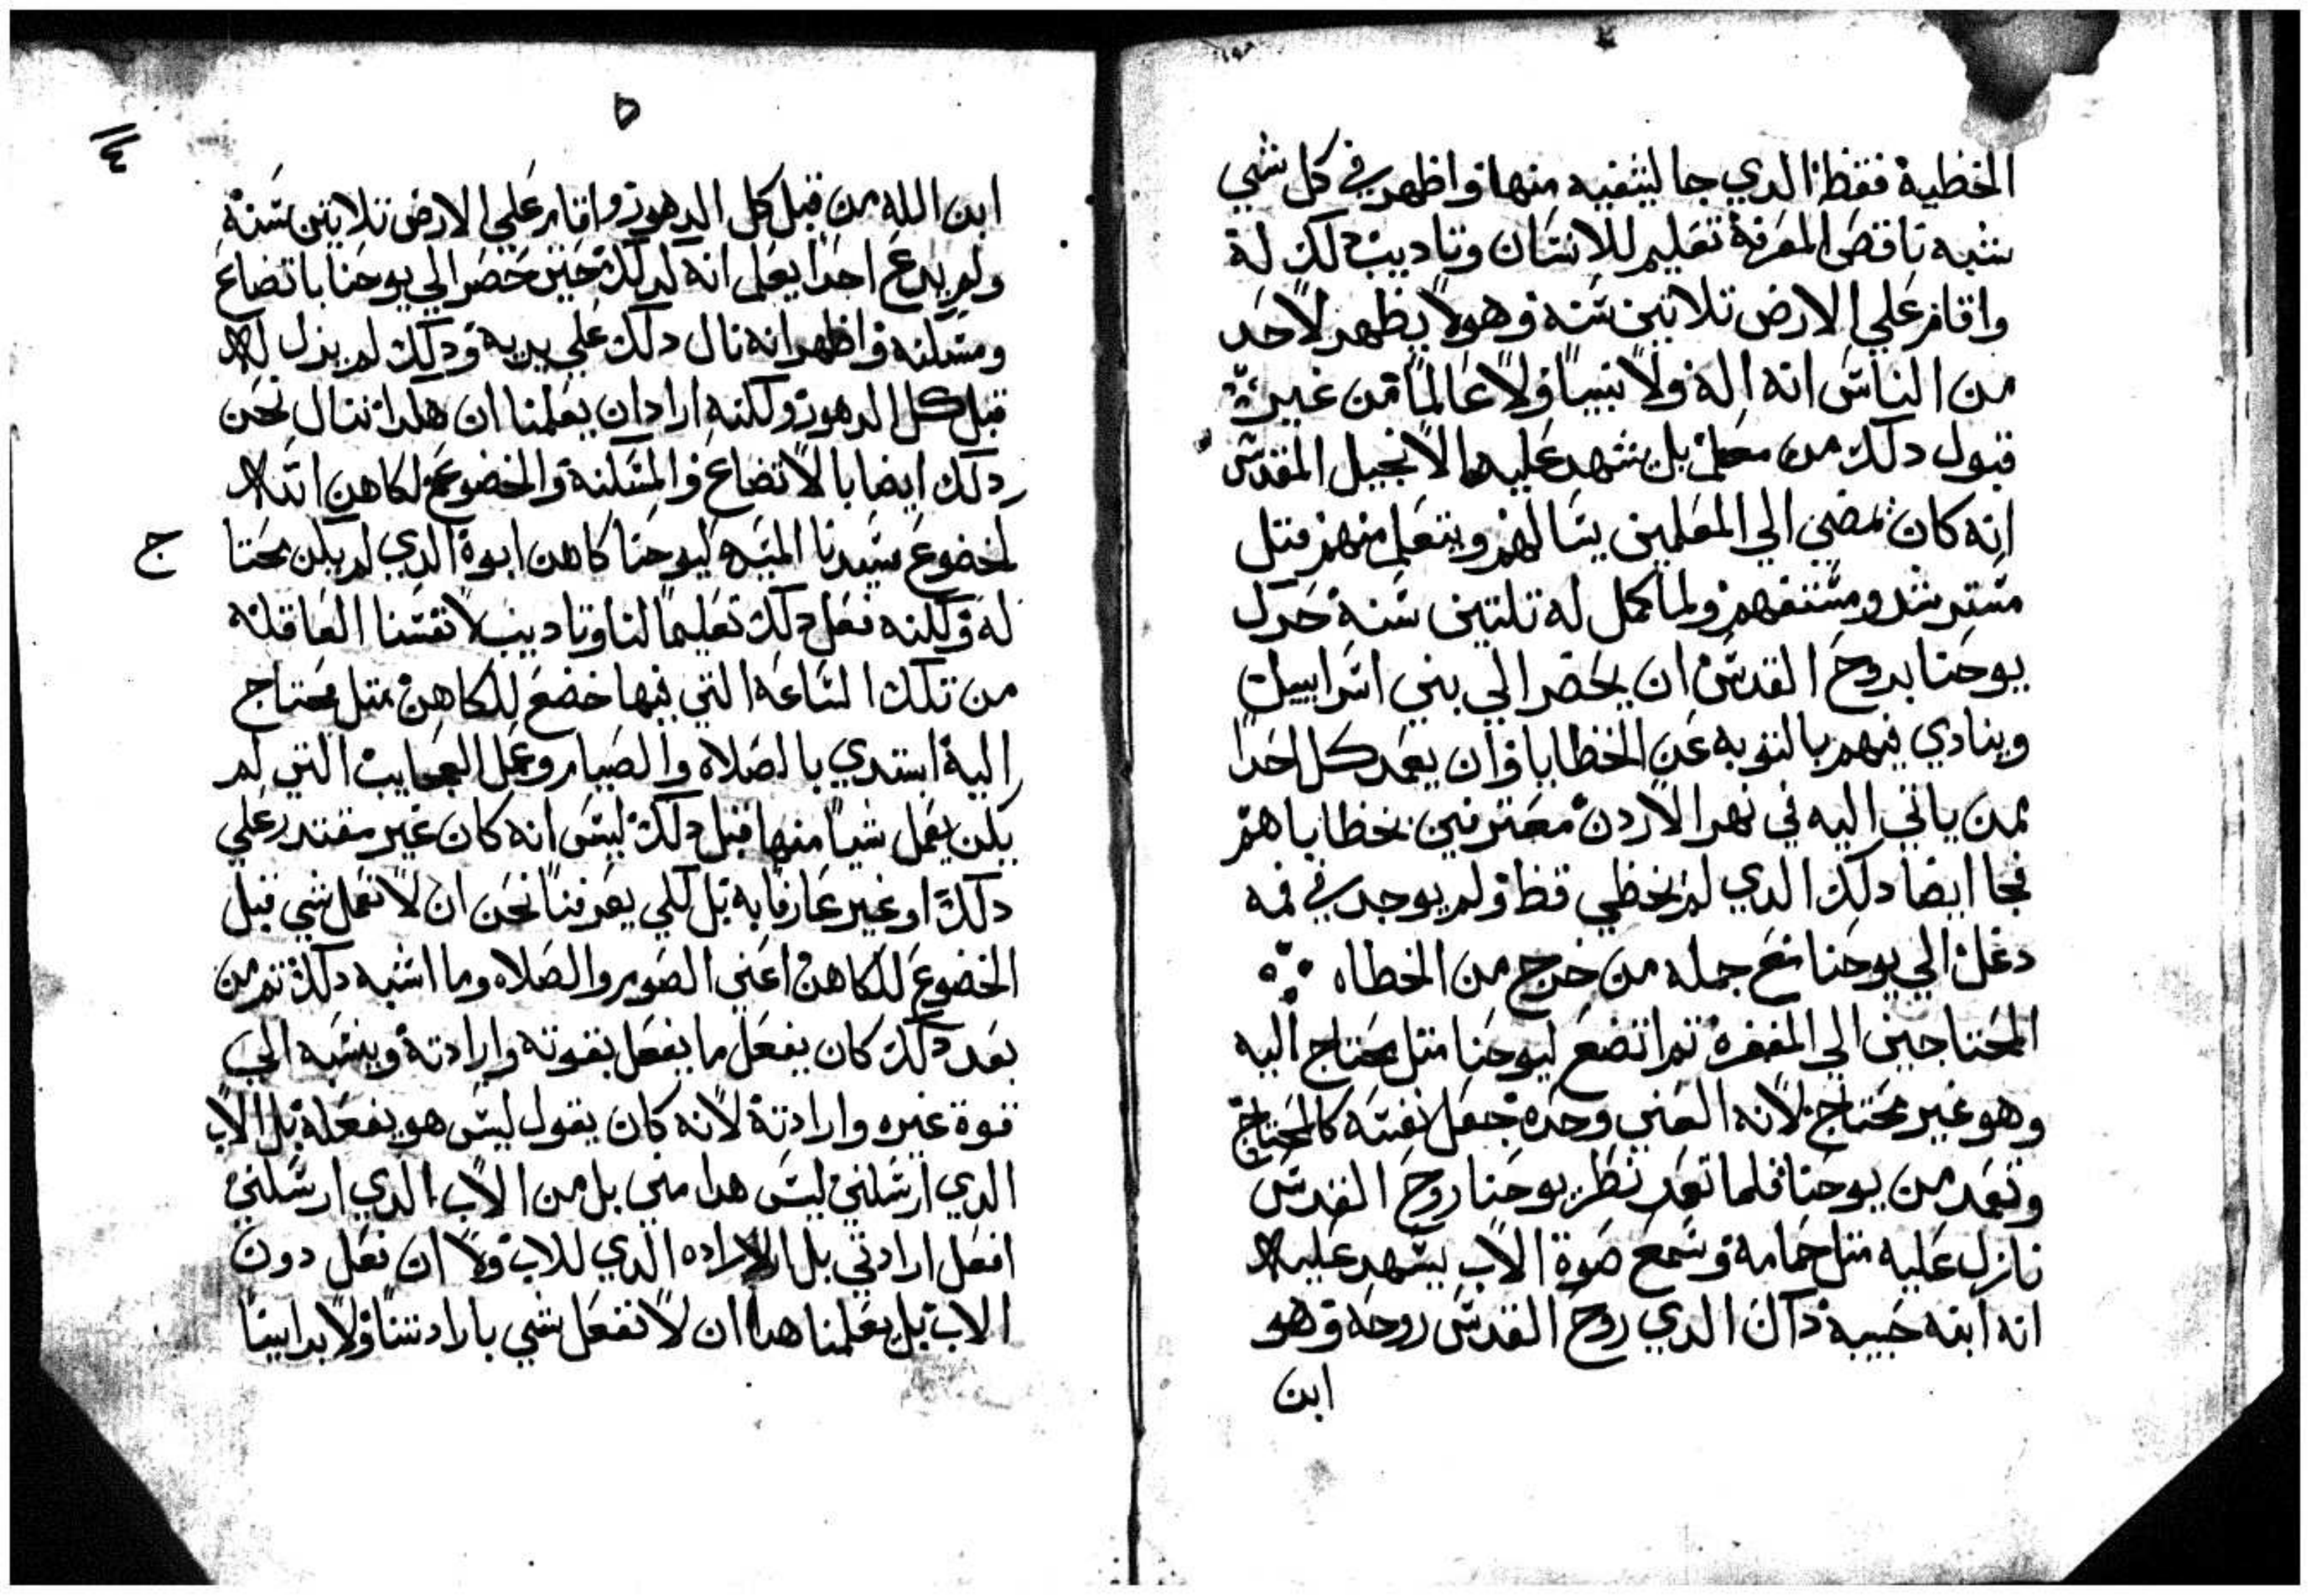 الخطية فقط الدي جا ليشفيه منها واظهر في كل شي
شبه ناقص المعرفة تعليم للانسان وتاديب دلك لة
واقام علي الارض تلاتين سنه وهو لا يظهر لاحد
من الناس انه اله ولا نبيا ولا عالما من غير
قبول دلك من معلم بل شهد عليه الانجيل المقدس
انه كان يمضي الي المعلمين يسالهم ويتعلم منهم متل
مسترشد ومستفهم ولما كمل له تلتين سنة حرك
يوحنا بروح القدس ان يحضر الي بني اسراييل
وينادي فيهم بالتوبه عن الخطايا وان يعمد كل احدا
ممن ياتي اليه في نهر الاردن معترفين بخطاياهم
فجا ايضا دلك الدي لم يخطي قط ولم يوجد في فمه
دغل الي يوحنا مع جمله من خرج من الخطاه
المحتاجين الي المغفرة تم اتضع ليوحنا متل محتاج اليه
وهو غير محتاج لانه الغني وحده جعل نفسه كالمحتاج
وتعمد من يوحنا فلما تعمد نظر يوحنا روح القدس
نازل عليه متل حمامه وسمع صوة الاب يشهد عليه
انه ابنه حبيبة داك الدي روح القدس روحه وهو
ابن
٥
٤
ابن الله من قبل كل الدهور واقام علي الارض تلاتين سنة
ولم يدع احدا يعلم انه كدلك حين حضر الي يوحنا باتضاع
ومسكنه واظهر انه نال دلك علي يديه ودلك لم يزل له
قبل كل الدهور ولكنه اراد ان يعلمنا ان هكدا ننال نحن
دلك ايضا بالاتضاع والمسكنة والخضوع للكاهن
لخضوع سيدنا المسيح ليوحنا كاهن ابوة الدي لم يكن محتاجا
ج
له ولكنه فعل دلك تعليما لنا وتاديب لانفسنا العاقلة
من تلك الساعه التي فيها خضع للكاهن متل محتاج
اليه ابتدي بالصلاه والصيام وعمل العجايب التي لم
يكن يعمل شيا منها قبل دلك ليس انه كان غير مقتدر علي
دلك او غير عارفا به بل لكي يعرفنا نحن ان لا نعمل شي قبل
الخضوع للكاهن اعني الصوم والصلاه وما اشبه دلك تم من
بعد دلك كان يفعل ما يفعل بقوته وارادتة وينسبه الي
قوة غيره وارادتة لانه كان يقول ليس هو يفعلة بل الاب
الدي ارسلني ليس هدا مني بل من الاب الدي ارسلني
افعل ارادتي بل الاراده الدي للاب ولا ان نعل دون
الاب بل يعلمنا هدا ان لا نفعل شي بارادتنا ولا براينا